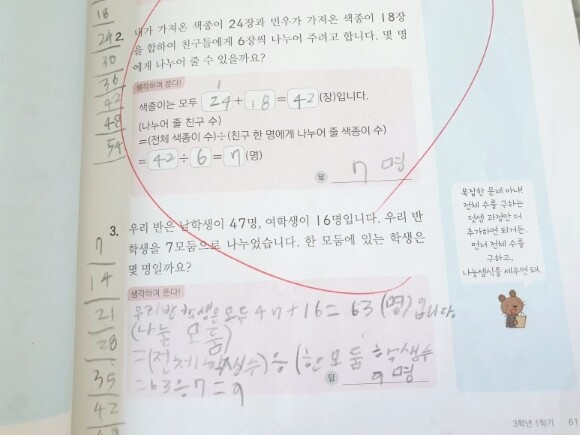 18
24
30
36
42
48
54
2. 내가 가져온 색종이 24장과 민우가 가져온 색종이 18장
을 합하여 친구들에게 6장씩 나누어 주려고 합니다. 몇 명
에게 나누어 줄 수 있을까요?
생각하며 쓴다!
1
색종이는 모두 24 + 18 = 42 (장)입니다.
(나누어 줄 친구 수)
=(전체 색종이 수)÷(친구 한 명에게 나누어 줄 색종이 수)
= 42 ÷ 6 = 7 (명)
답 7 명
7
14
21
28
35
42
3. 우리 반은 남학생이 47명, 여학생이 16명입니다. 우리 반
학생을 7모둠으로 나누었습니다. 한 모둠에 있는 학생은
몇 명일까요?
생각하며 쓴다!
우리 반 학생은 모두 47+16=63(명)입니다.
(나눌 모둠)
=(전체 학생수)÷(한 모둠 학생수
=63÷7=9
답 9 명
복잡한 문제 아냐!
전체 수를 구하는
덧셈 과정만 더
추가하면 되거든.
먼저 전체 수를
구하고,
나눗셈식을 세우면 돼.
3학년 1학기 61